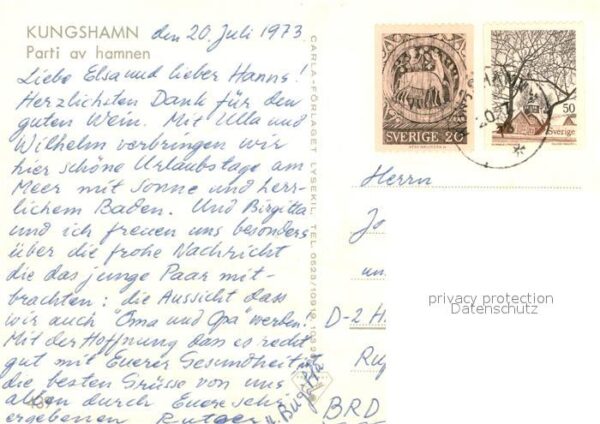 KUNGSHAMN
Parti av hamnen
den 20. Juli 1973
Liebe Elsa und lieber Hanns!
Herzlichsten Dank für den
guten Wein. Mit Ulla und
Wilhelm verbringen wir
hier schöne Urlaubstage am
Meer mit Sonne und herr-
lichem Baden. Und Birgitta
und ich freuen uns besonders
über die frohe Nachricht
die das junge Paar mit-
brachten: die Aussicht dass
wir auch "Oma und Opa" werden!
Mit der Hoffnung dass es recht
gut mit Euerer Gesundheit ist
die besten Grüsse von uns
allen durch Euere sehr
ergebenen Rutger
u. Birgitta
CARLA-FÖRLAGET LYSEKIL, TEL. 0523/10919, 103
SVERIGE 20
50
Sverige
KUNGSHAMN
20.7
73
Herrn
Jo
un
D-2 H
Ru
BRD
privacy protection
Datenschutz